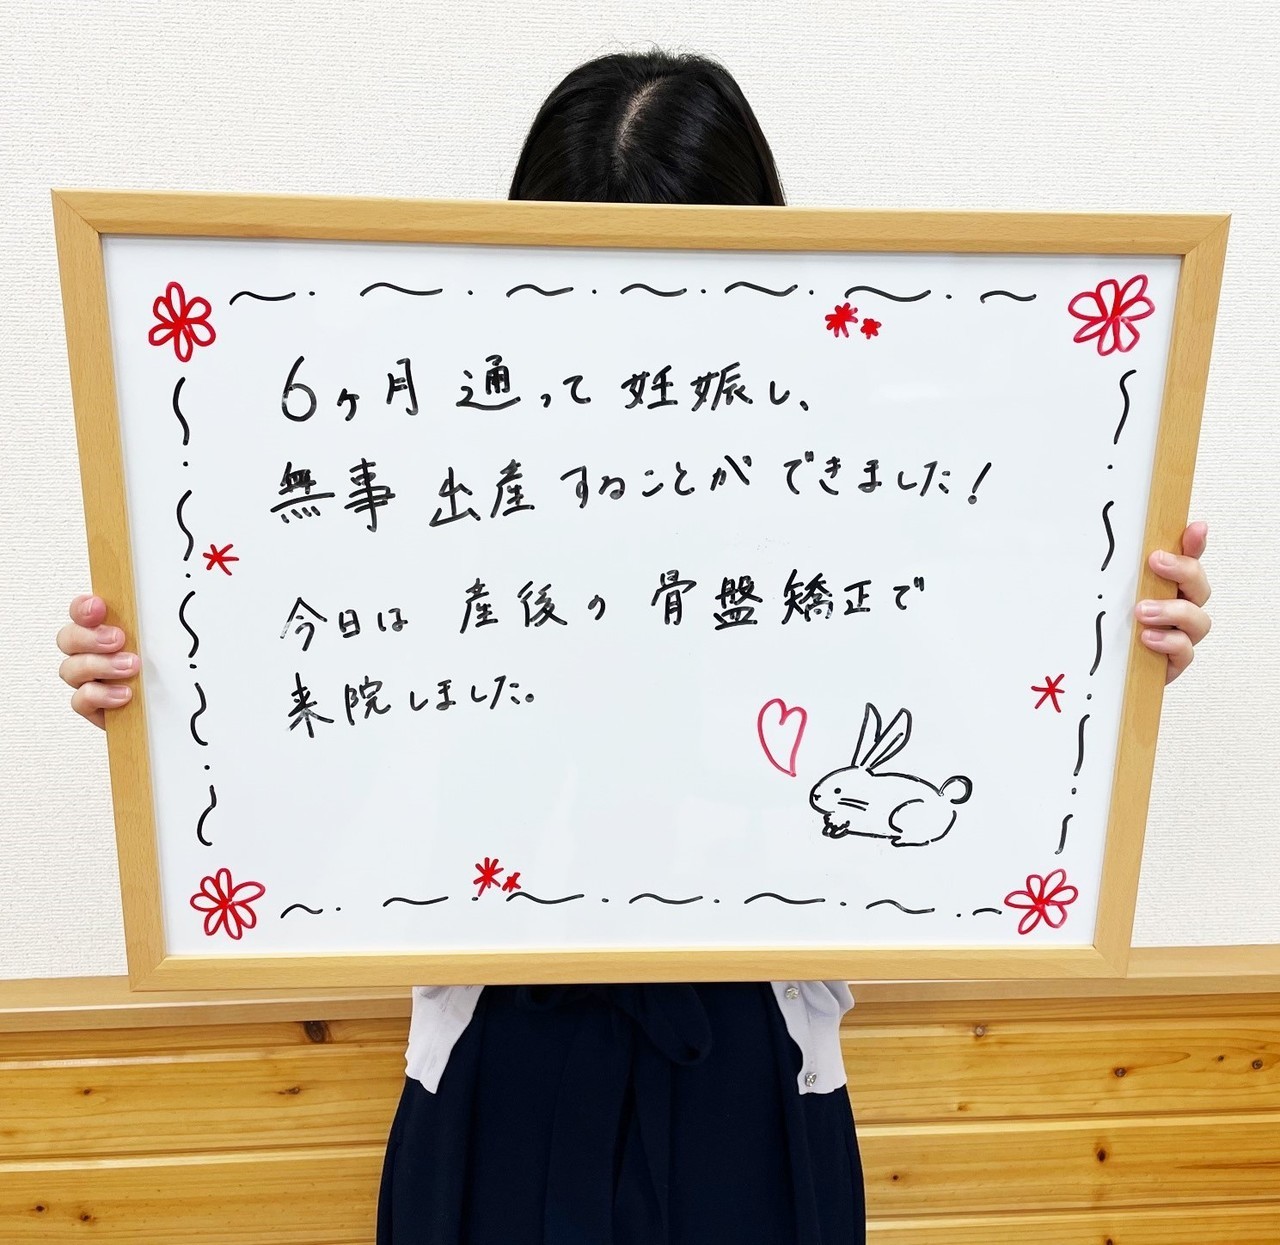 6ヶ月通って妊娠し、
無事出産することができました!
今日は産後の骨盤矯正で
来院しました。